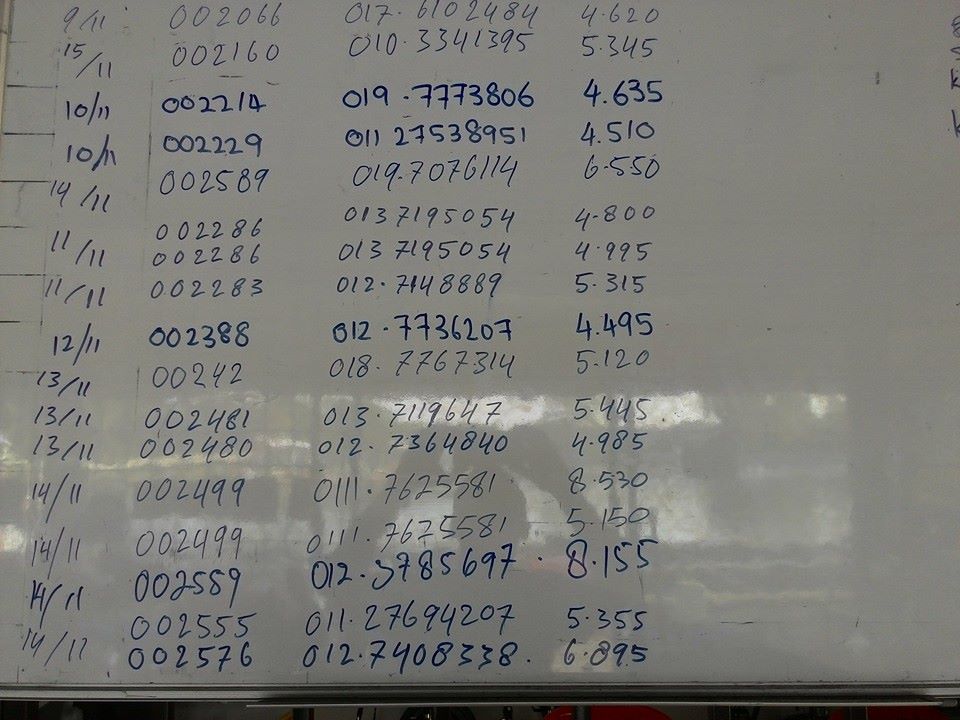 9/11 002066 017.6102484 4.620
15/11 002160 010.3341395 5.345
10/11 002214 019.7773806 4.635
10/11 002229 011 27538951 4.510
14/11 002589 019.7076114 6.550
002286 013 7195054 4.800
11/11 002286 013 7195054 4.995
11/11 002283 012.7148889 5.315
12/11 002388 012.7736207 4.495
13/11 00242 018.7767314 5.120
13/11 002481 013.7119647 5.445
13/11 002480 012.7364840 4.985
14/11 002499 0111.7625581 8.530
14/11 002499 0111.7625581 5.150
14/11 002559 012.3785697. 8.155
002555 011.27694207 5.355
14/11 002576 012.7408338. 6.895